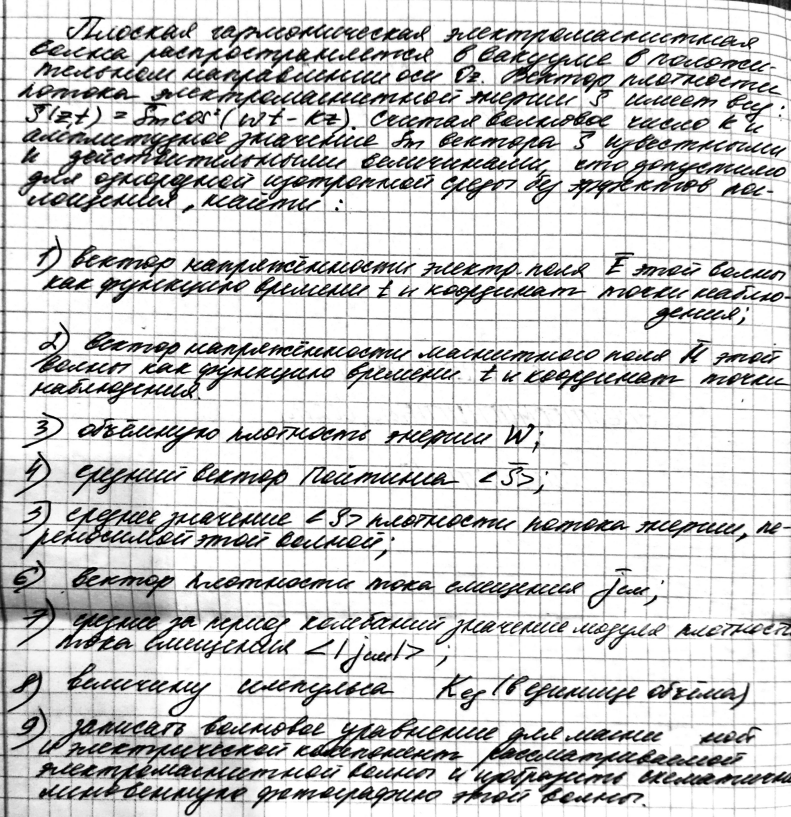 Плоская гармоническая электромагнитная
волна распространяется в вакууме в положи-
тельном направлении оси Oz. Вектор плотности
потока электромагнитной энергии S̄ имеет вид:
S̄(zt) = S̄m cos²(ωt - kz). Считая волновое число k и
амплитудное значение S̄m вектора S̄ известными
и действительными величинами, что допустимо
для однородной изотропной среды без эффектов пог-
лощения, найти:
1) вектор напряжённости электр. поля Ē этой волны
как функцию времени t и координат точки наблю-
дения;
2) Вектор напряжённости магнитного поля H̄ этой
волны как функцию времени t и координат точки
наблюдения.
3) объёмную плотность энергии W;
4) средний вектор Пойтинга <S̄>;
5) среднее значение <S> плотности потока энергии, пе-
реносимой этой волной;
6) вектор плотности тока смещения j̄см;
7) среднее за период колебаний значение модуля плотност
тока смещения <|jсм|>;
8) величину импульса Kед (в единице объёма)
9) записать волновое уравнение для магни ной
и электрической компонент рассматриваемой
электромагнитной волны и изобразить схематично
мгновенную фотографию этой волны.